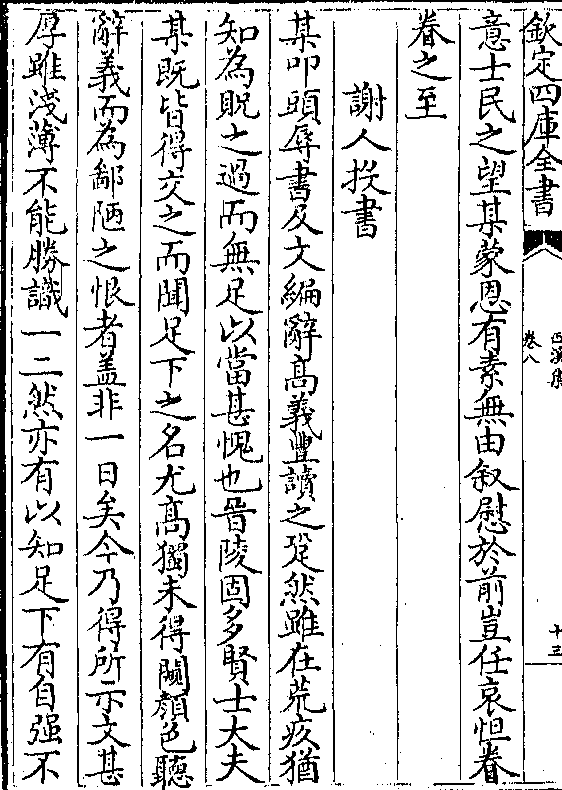 欽定四庫全書
西溪集
卷八
十三
意士民之望某蒙恩有素無由叙慰於前豈任哀怛眷
眷之至
謝人投書
某叩頭辱書及文編辭髙義豐讀之跫然雖在荒疚猶
知為貺之過而無足以當甚愧也晉陵固多賢士大夫
某既皆得交之而聞足下之名尤髙獨未得闚顔色聽
辭義而為鄙陋之恨者盖非一日矣今乃得所示文甚
厚雖淺薄不能勝識一二然亦有以知足下有自强不